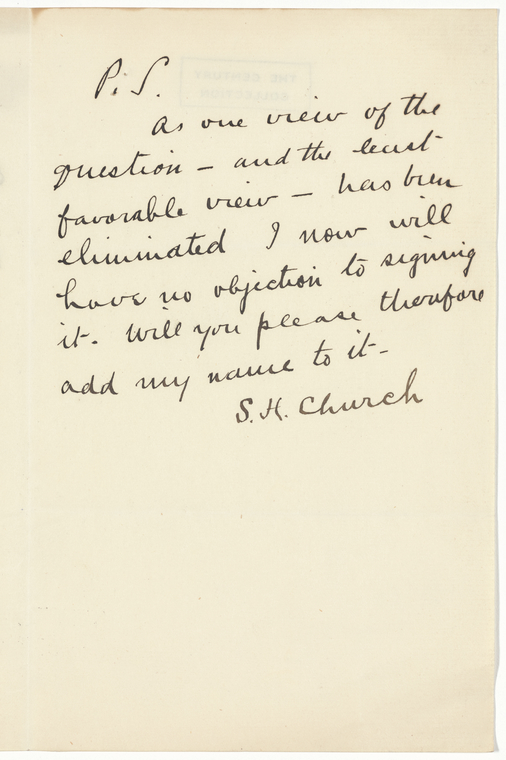 P.S.
THE CENTURY
COLLECTION
As one view of the
question – and the least
favorable view – has been
eliminated I now will
have no objection to signing
it. Will you please therefore
add my name to it –
S. H. Church